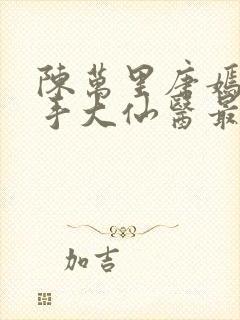 陳萬里唐嫣
手大仙醫最
加吉